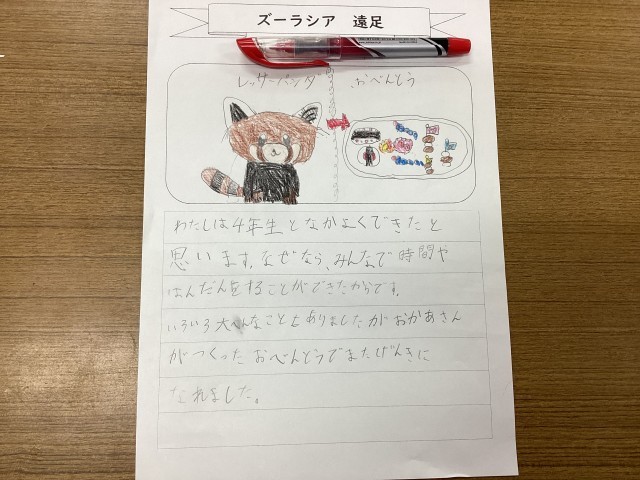 ズーラシア 遠足
レッサーパンダ おべんとう
わたしは4年生となかよくできたと
思います。なぜなら、みんなで時間や
はんだんをすることができたからです。
いろいろ大へんなこともありましたがおかあさん
がつくったおべんとうでまたげんきに
なれました。